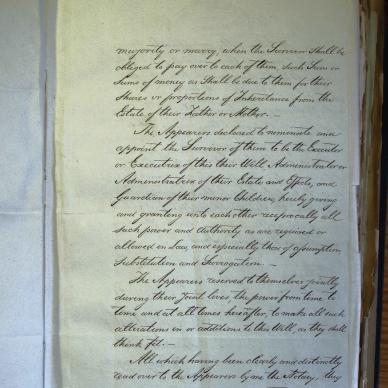 majority or marry, when the Survivor shall be
obliged to pay over to each of them, such Sum or
Sums of money as Shall be due to them for their
Shares or proportions of Inheritance from the
Estate of their Father or Mother. —
The Appearers declared to nominate and
appoint the Survivor of them to be the Executor
or Executrix of this their Will, Administrator or
Administratrix of their Estate and Effects, and
Guardian of their minor Children, hereby giving
and granting unto each other reciprocally all
such power and authority as are required or
allowed in Law, and especially those of assumption,
Substitution and Surrogation.
The Appearers reserved to themselves jointly
during their joint lives the power from time to
time and at all times hereafter, to make all such
alterations in or additions to this Will, as they shall
think fit: —
All which having been clearly and distinctly
read over to the Appearers by me the Notary, they